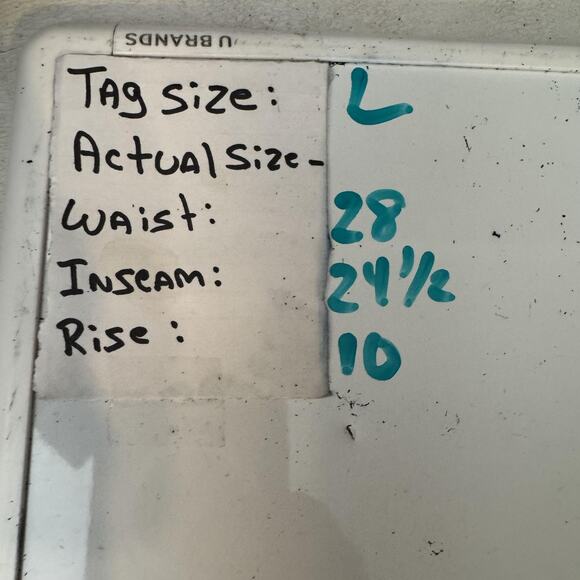 U BRANDS
TAg Size: L
Actual Size-
Waist: 28
Inseam: 24 1/2
Rise: 10